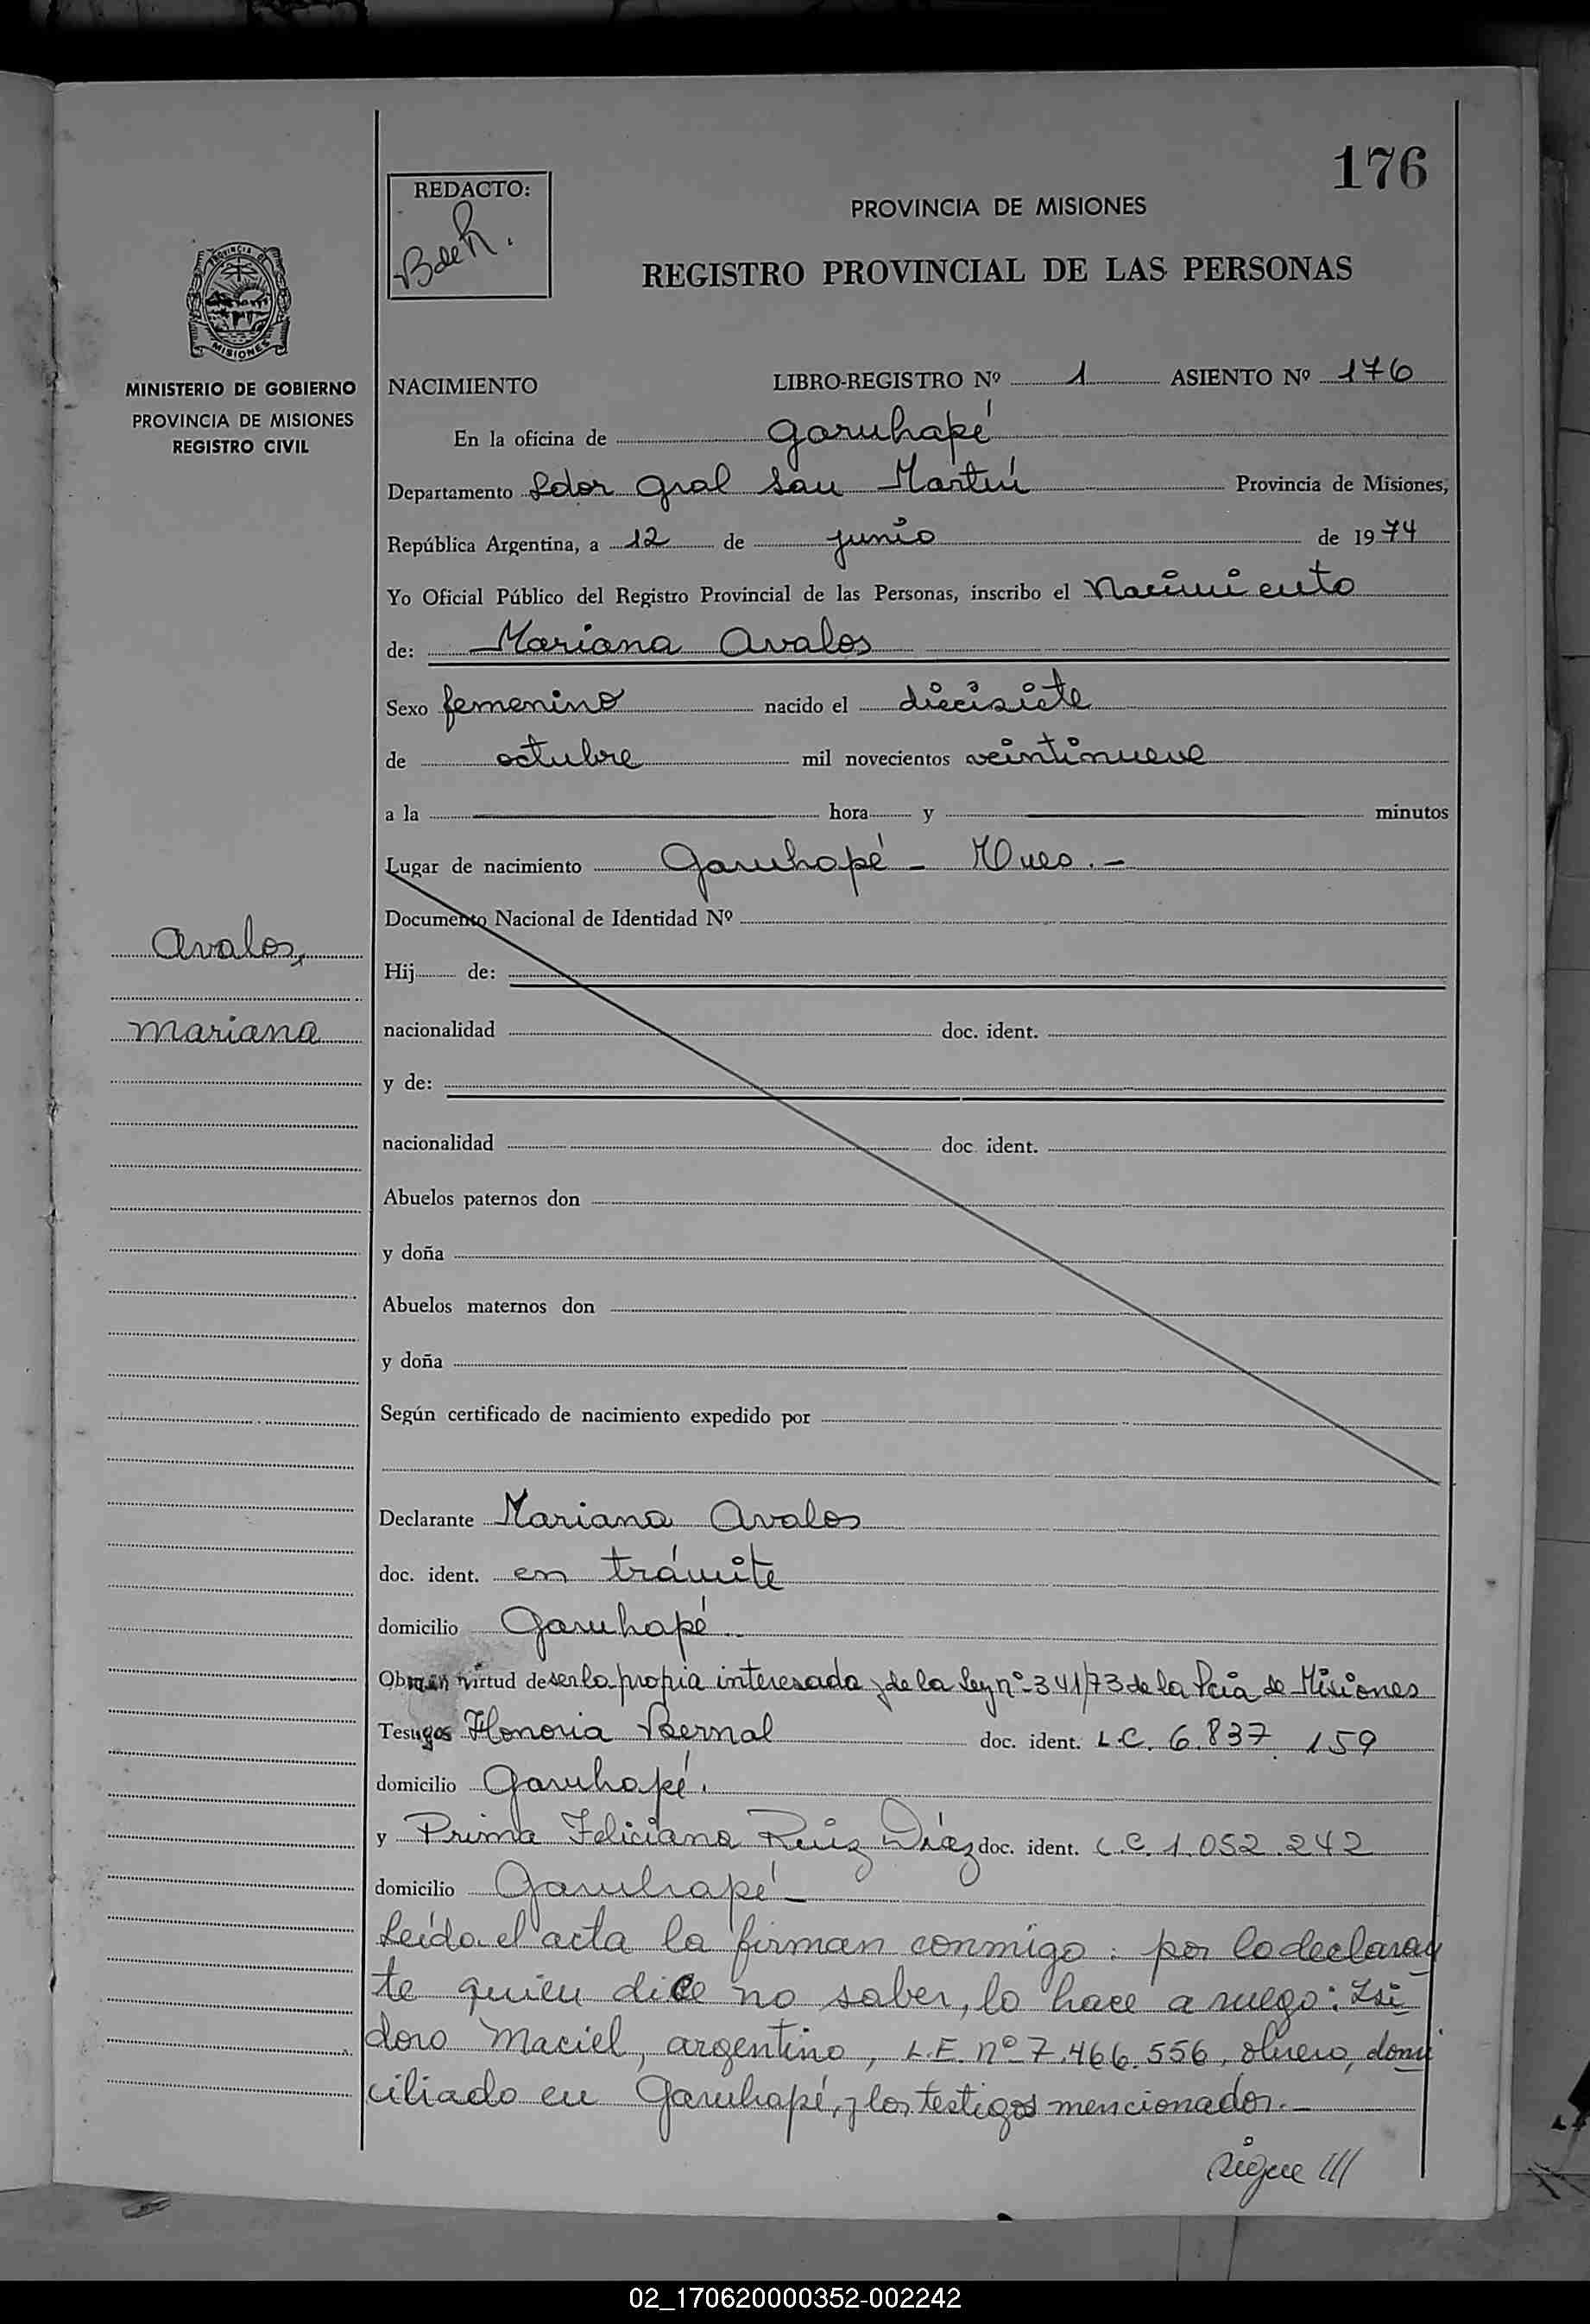 176
REDACTO:
B de R.
PROVINCIA DE MISIONES
REGISTRO PROVINCIAL DE LAS PERSONAS
PROVINCIA DE
MISIONES
MINISTERIO DE GOBIERNO
PROVINCIA DE MISIONES
REGISTRO CIVIL
NACIMIENTO LIBRO-REGISTRO Nº 1 ASIENTO Nº 176
En la oficina de Garuhapé
Departamento Ldor Gral San Martín Provincia de Misiones,
República Argentina, a 12 de junio de 1974
Yo Oficial Público del Registro Provincial de las Personas, inscribo el Nacimiento
de: Mariana Avalos
Sexo femenino nacido el diecisiete
de octubre mil novecientos veintinueve
a la hora y minutos
Lugar de nacimiento Garuhapé - Mnes. -
Documento Nacional de Identidad Nº
Avalos,
Hij de:
mariana
nacionalidad doc. ident.
y de:
nacionalidad doc. ident.
Abuelos paternos don
y doña
Abuelos maternos don
y doña
Según certificado de nacimiento expedido por
Declarante Mariana Avalos
doc. ident. en trámite
domicilio Garuhapé
Obra en virtud de ser la propia interesada y de la ley nº 341/73 de la Pcia de Misiones
Testigos Honoria Bernal doc. ident. L.C. 6.837.159
domicilio Garuhapé.
y Prima Feliciana Ruiz Díaz doc. ident. L.C. 1.052.242
domicilio Garuhapé -
Leída el acta la firman conmigo: por la declaran
te quien dice no saber, lo hace a ruego: Isi
doro Maciel, argentino, L.E. nº 7.466.556, obrero, domi
ciliado en Garuhapé, y los testigos mencionados. -
Sigue ///
02_170620000352-002242